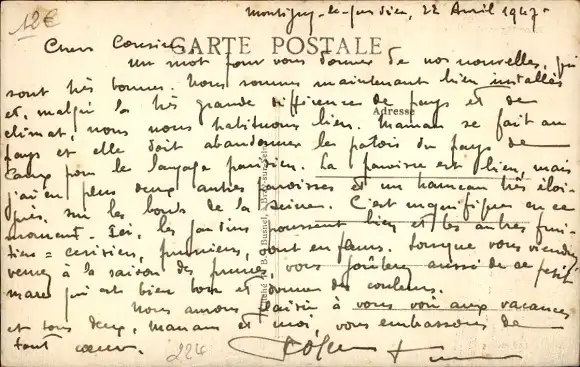 12€
Montigny-le-Gardien, 22 Avril 1947.
Chers Cousins
CARTE POSTALE
Un mot pour vous donner de nos nouvelles, qui
sont très bonnes. Nous sommes maintenant bien installés
et, malgré la très grande différence de pays et de
Adresse
climat, nous nous habituons bien. Maman se fait au
pays et elle doit abandonner le patois du pays de
Caux pour le langage parisien. La paroisse est bien, mais
j'ai en plus deux autres paroisses et un hameau très éloi-
gnés, sur les bords de la Seine. C'est magnifique en ce
moment. Ici, les jardins poussent bien et les arbres frui-
tiers = cerisiers, pruniers, sont en fleurs. Lorsque vous viendrez
à la saison des prunes, vous goûterez aussi de ce petit
marc qui est bien bon et donne des couleurs.
Nous aurons plaisir à vous voir aux vacances
et tous deux, maman et moi, vous embrassons de
tout cœur.
224